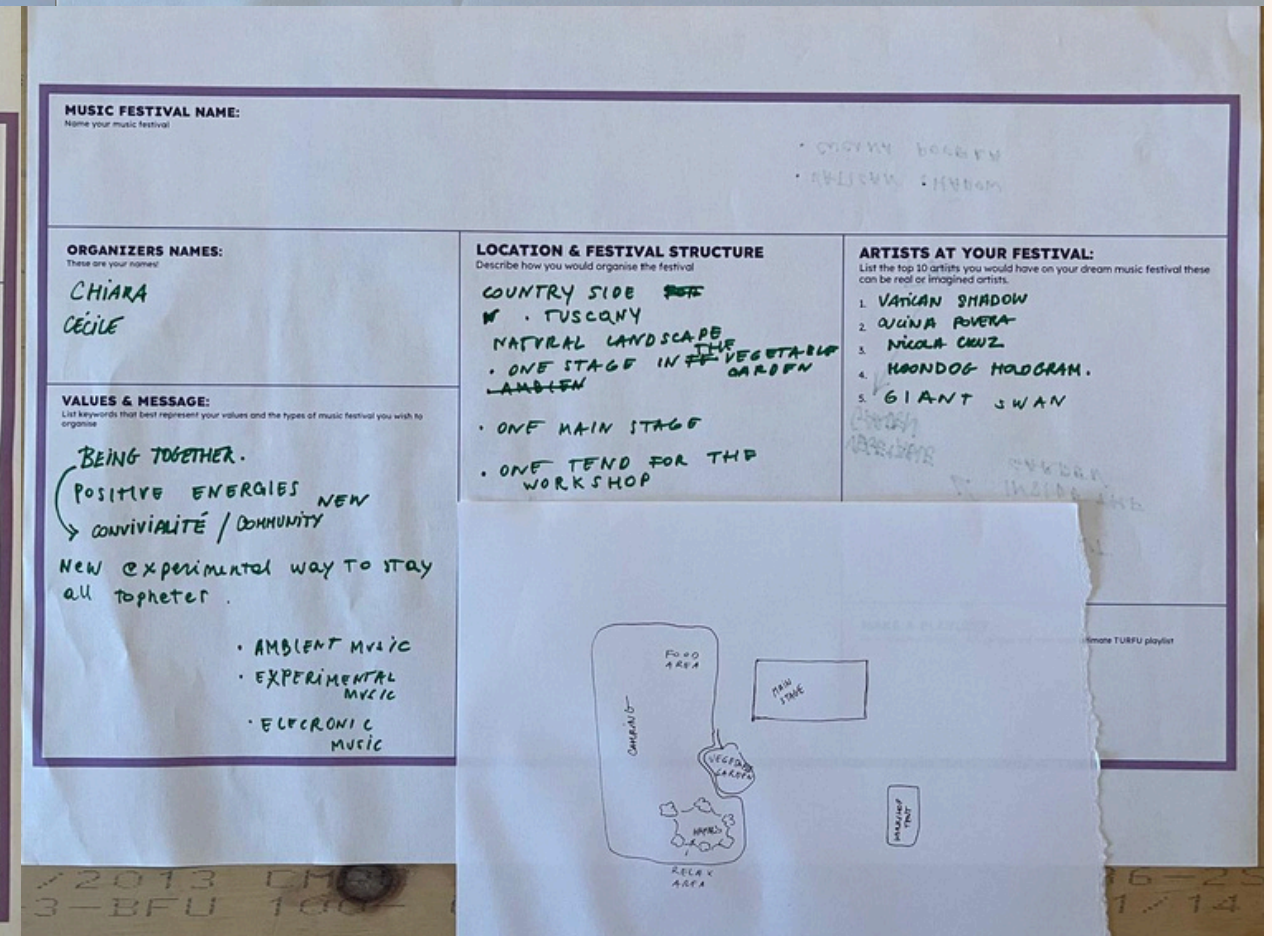 MUSIC FESTIVAL NAME:
Name your music festival
ORGANIZERS NAMES:
These are your names!
CHIARA
CÉCILE
VALUES & MESSAGE:
List keywords that best represent your values and the types of music festival you wish to
organise
BEING TOGETHER.
POSITIVE ENERGIES NEW
CONVIVIALITÉ / COMMUNITY
New experimental way to stay
all topheter.
• AMBIENT MUSIC
• EXPERIMENTAL
MUSIC
• ELECRONIC
MUSIC
LOCATION & FESTIVAL STRUCTURE
Describe how you would organise the festival
COUNTRY SIDE
• TUSCANY
NATURAL LANDSCAPE
• ONE STAGE IN THE VEGETABLE
GARDEN
AMBIEN
• ONE MAIN STAGE
• ONE TEND FOR THE
WORKSHOP
ARTISTS AT YOUR FESTIVAL:
List the top 10 artists you would have on your dream music festival these
can be real or imagined artists.
1. VATICAN SHADOW
2. CUCINA POVERA
3. NICOLA CRUZ
4. MOONDOG HOLOGRAM.
5. GIANT SWAN
timate TURFU playlist
FOOD
AREA
MAIN
STAGE
CAMPING
VEGETABLE
GARDEN
WORKSHOP
TENT
RELAX
AREA
/2013
3-BFU 100-
6-2S
1/14